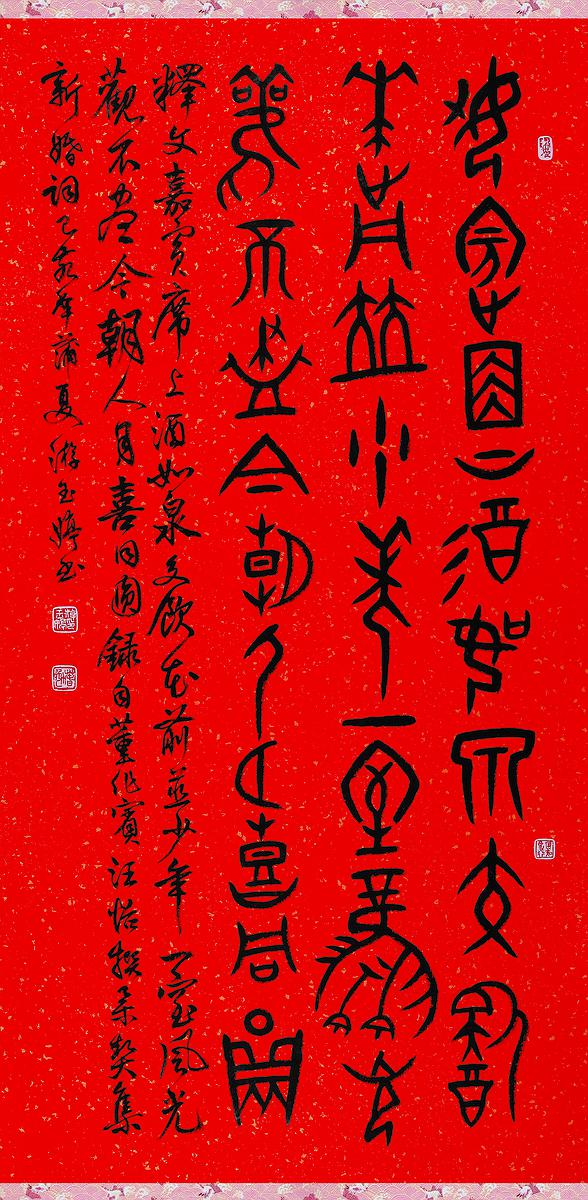 嘉賓席上酒如泉交飲
花前並少年一室風光
觀不盡今朝人月喜同圓
釋文嘉賓席上酒如泉交飲花前並少年一室風光
觀不盡今朝人月喜同圓錄自董作賓汪怡撰契集
新婚詞己亥年蒲夏游玉婷書